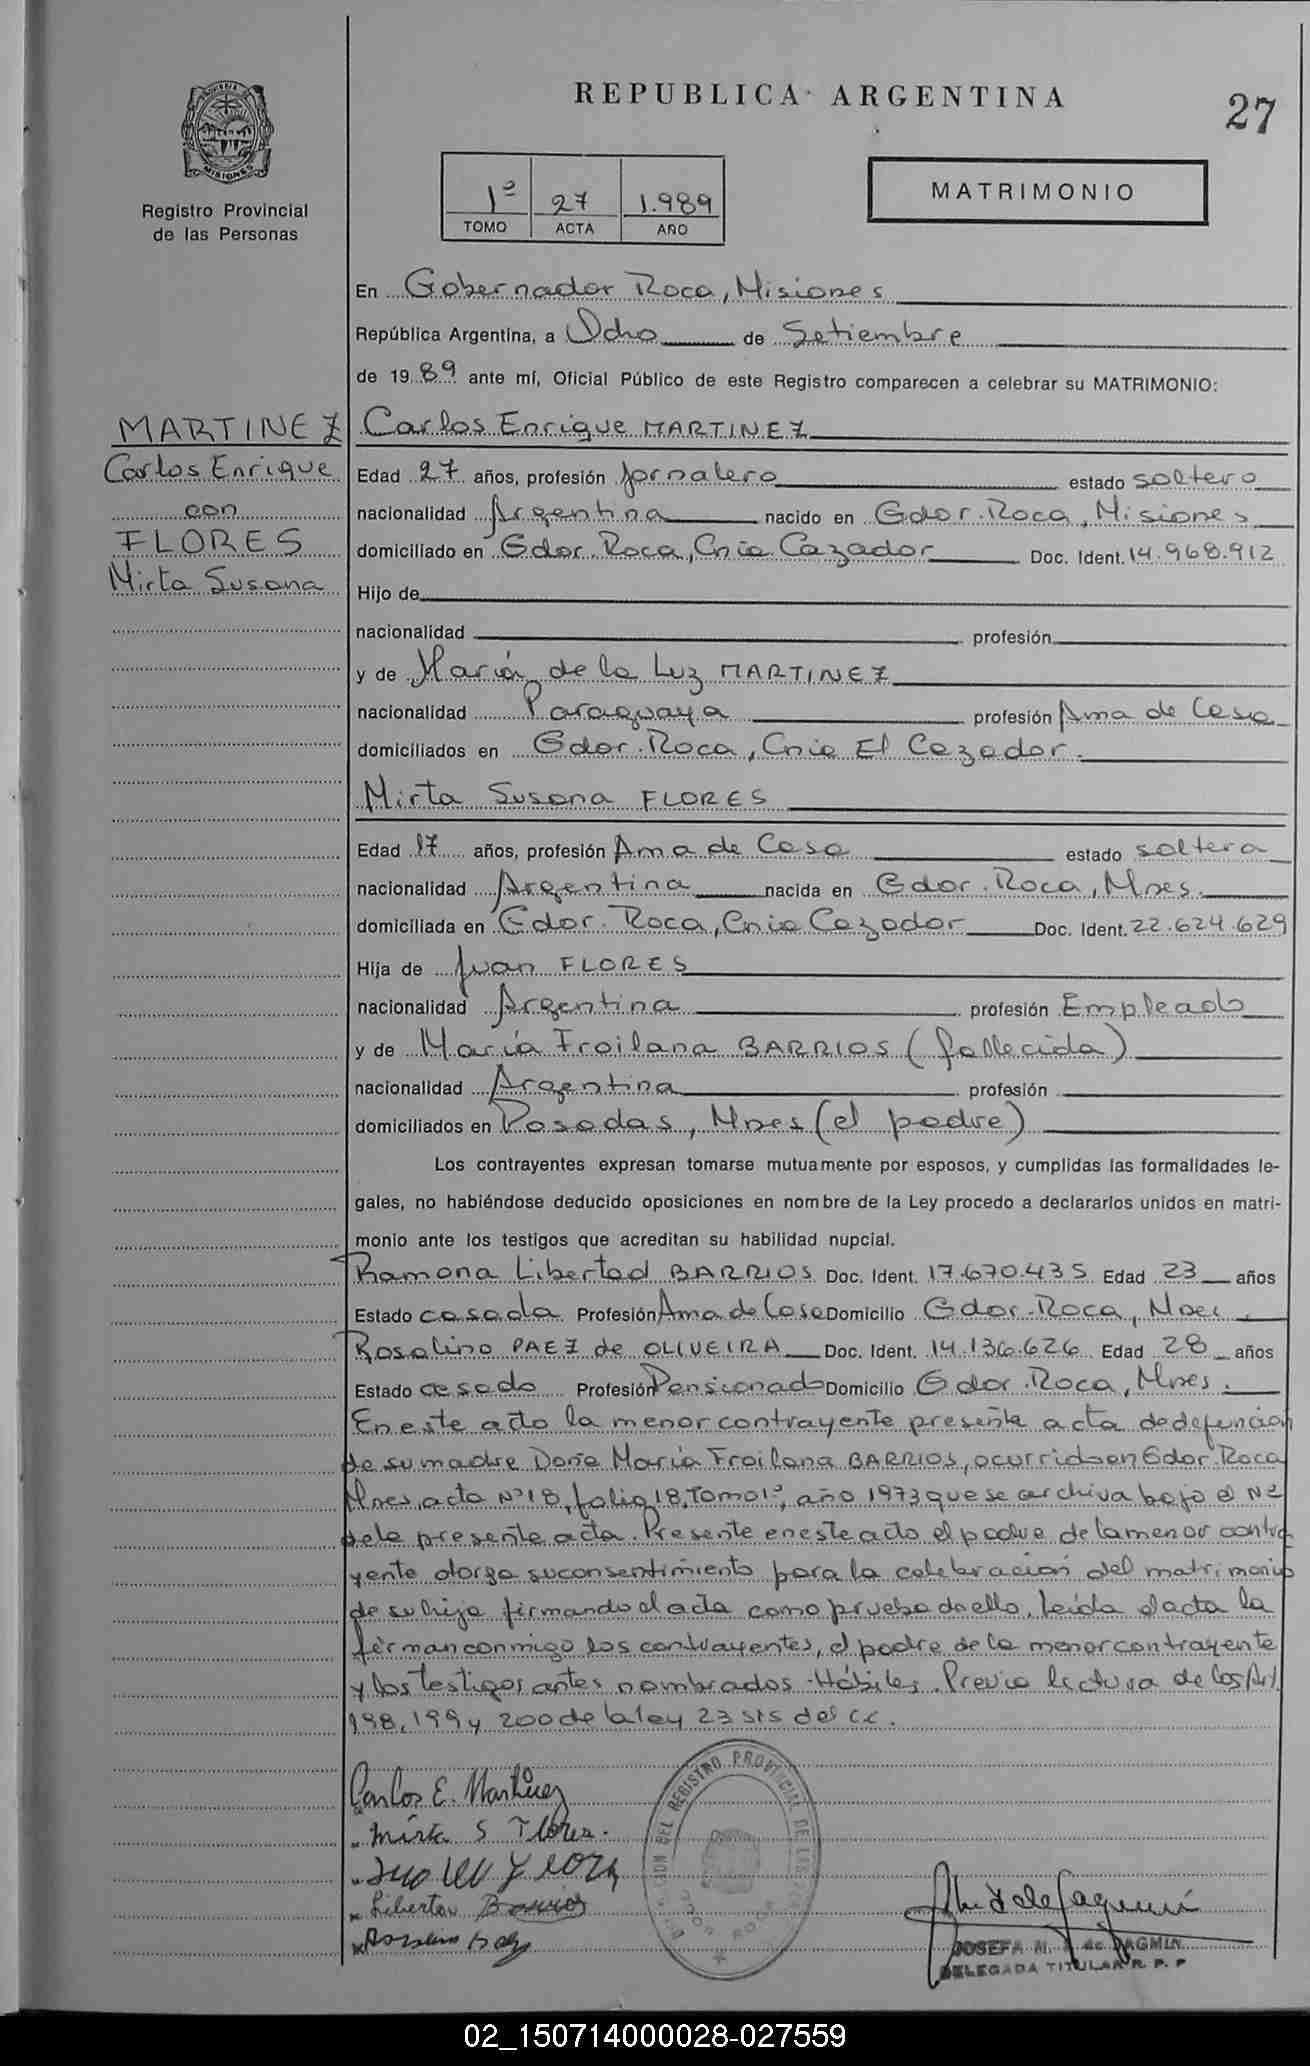 REPUBLICA ARGENTINA
27
PROVINCIA DE MISIONES
Registro Provincial
de las Personas
1º 27 1.989
TOMO ACTA AÑO
MATRIMONIO
En Gobernador Roca, Misiones
República Argentina, a Ocho de Setiembre
de 19 89 ante mí, Oficial Público de este Registro comparecen a celebrar su MATRIMONIO:
MARTINEZ
Carlos Enrique
con
FLORES
Mirta Susana
Carlos Enrique MARTINEZ
Edad 27 años, profesión Jornalero estado soltero
nacionalidad Argentina nacido en Gdor. Roca, Misiones
domiciliado en Gdor. Roca, Cnia Cazador Doc. Ident. 14.968.912
Hijo de
nacionalidad profesión
y de María de la Luz MARTINEZ
nacionalidad Paraguaya profesión Ama de Casa
domiciliados en Gdor. Roca, Cnia El Cazador.
Mirta Susana FLORES
Edad 17 años, profesión Ama de Casa estado soltera
nacionalidad Argentina nacida en Gdor. Roca, Mnes.
domiciliada en Gdor. Roca, Cnia Cazador Doc. Ident. 22.624.629
Hija de Juan FLORES
nacionalidad Argentina profesión Empleado
y de María Froilana BARRIOS (fallecida)
nacionalidad Argentina profesión
domiciliados en Posadas, Mnes (el padre)
Los contrayentes expresan tomarse mutuamente por esposos, y cumplidas las formalidades le-
gales, no habiéndose deducido oposiciones en nombre de la Ley procedo a declararlos unidos en matri-
monio ante los testigos que acreditan su habilidad nupcial.
Ramona Libertad BARRIOS Doc. Ident. 17.670.435 Edad 23 años
Estado casada Profesión Ama de Casa Domicilio Gdor. Roca, Mnes.
Rosalino PAEZ de OLIVEIRA Doc. Ident. 14.136.626 Edad 28 años
Estado casado Profesión Pensionado Domicilio Gdor. Roca, Mnes.
En este acto la menor contrayente presenta acta de defunción
de su madre Doña María Froilana BARRIOS, ocurrida en Gdor. Roca
Mnes, acta Nº 18, folio 18, Tomo 1º, año 1973 que se archiva bajo el Nº
de la presente acta. Presente en este acto el padre de la menor contra
yente otorga su consentimiento para la celebración del matrimonio
de su hija firmando el acta como prueba de ello. Leída el acta la
firman conmigo los contrayentes, el padre de la menor contrayente
y los testigos antes nombrados - Hábiles. Previa lectura de los Art.
198, 199 y 200 de la ley 23515 del C.C.
Carlos E. Martinez
Mirta S Flores.
Libertad Barrios
JOSEFA M. de JAGMIN
DELEGADA TITULAR R. P. P
DEL REGISTRO PROVINCIAL DE LAS
ROCA
02_150714000028-027559